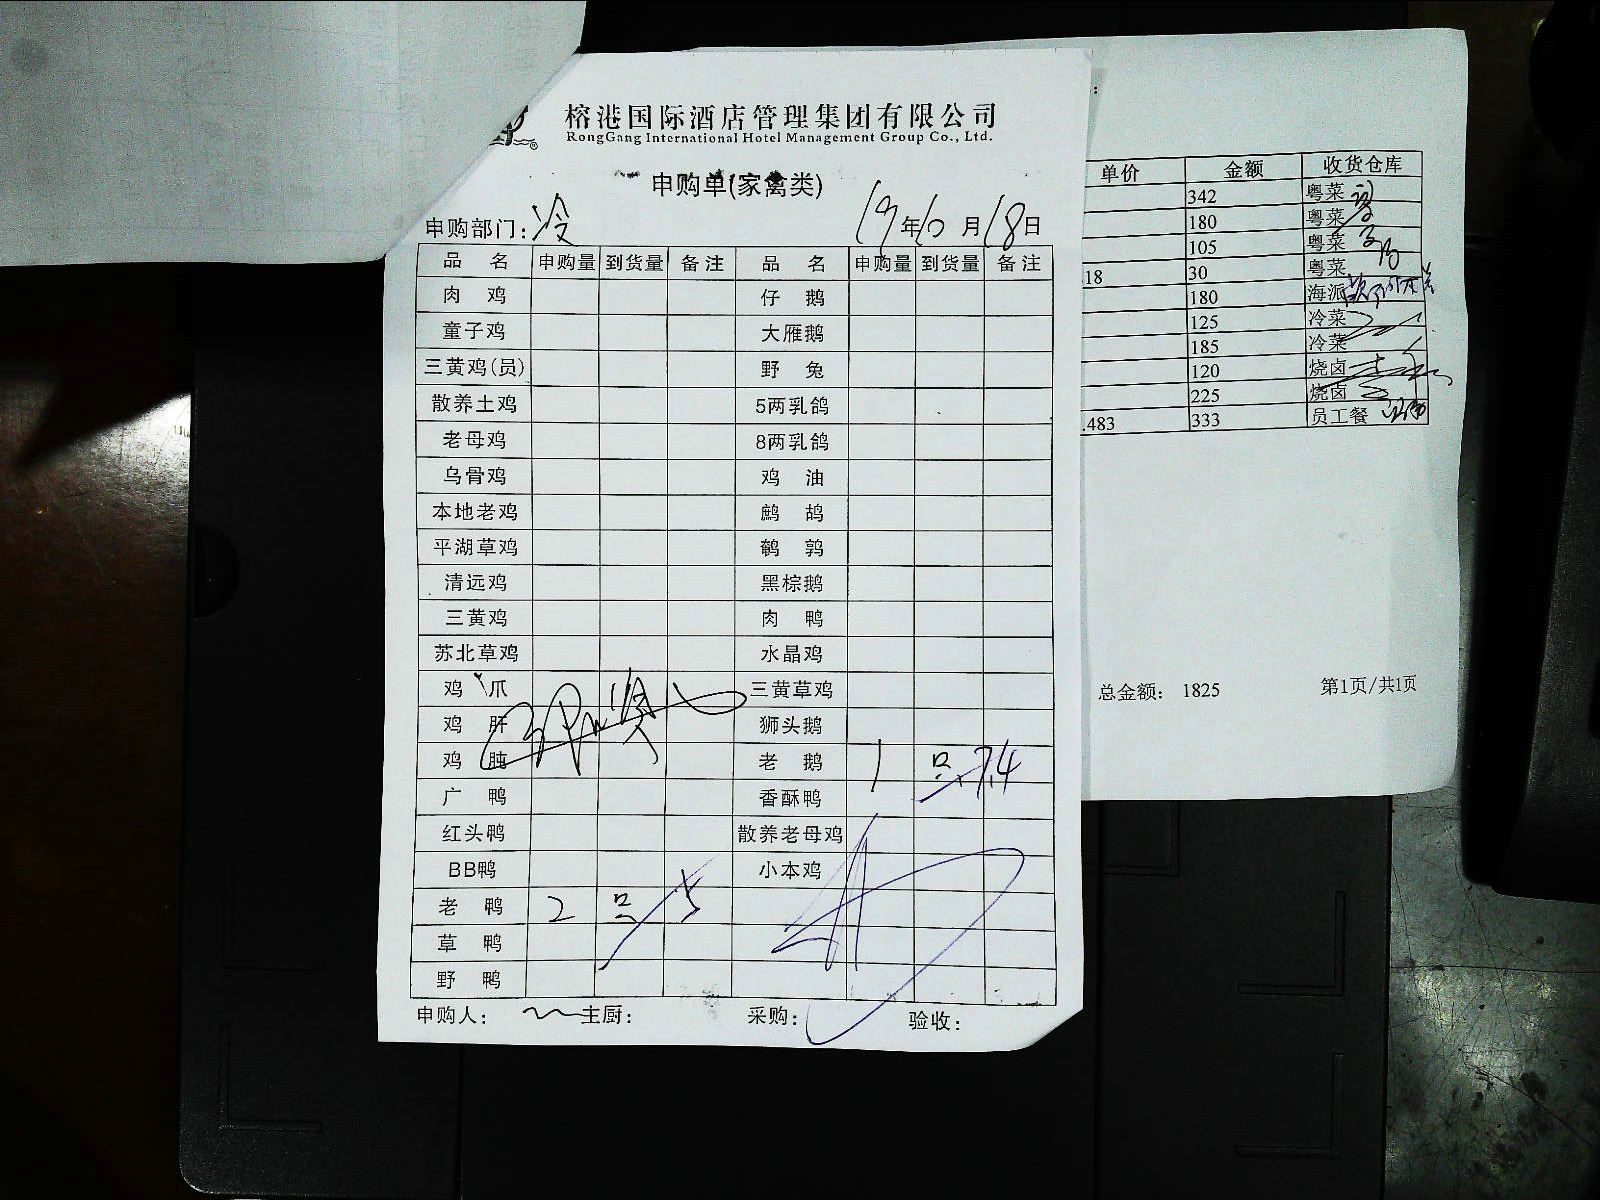 榕港国际酒店管理集团有限公司
RongGang International Hotel Management Group Co., Ltd.
申购单(家禽类)
申购部门：冷 19年6月18日
品 名 申购量 到货量 备注 品 名 申购量 到货量 备注
肉 鸡 仔 鹅
童子鸡 大雁鹅
三黄鸡(员) 野 兔
散养土鸡 5两乳鸽
老母鸡 8两乳鸽
乌骨鸡 鸡 油
本地老鸡 鹧 鸪
平湖草鸡 鹌 鹑
清远鸡 黑棕鹅
三黄鸡 肉 鸭
苏北草鸡 水晶鸡
鸡 爪 三黄草鸡
鸡 肝 狮头鹅
鸡 肫 老 鹅 1 只 7.4
广 鸭 香酥鸭
红头鸭 散养老母鸡
BB鸭 小本鸡
老 鸭 2 只 5
草 鸭
野 鸭
申购人： 主厨： 采购： 验收：
单价 金额 收货仓库
342 粤菜
180 粤菜
105 粤菜
.18 30 粤菜
180 海派
125 冷菜
185 冷菜
120 烧卤
225 烧卤
.483 333 员工餐
总金额： 1825 第1页/共1页